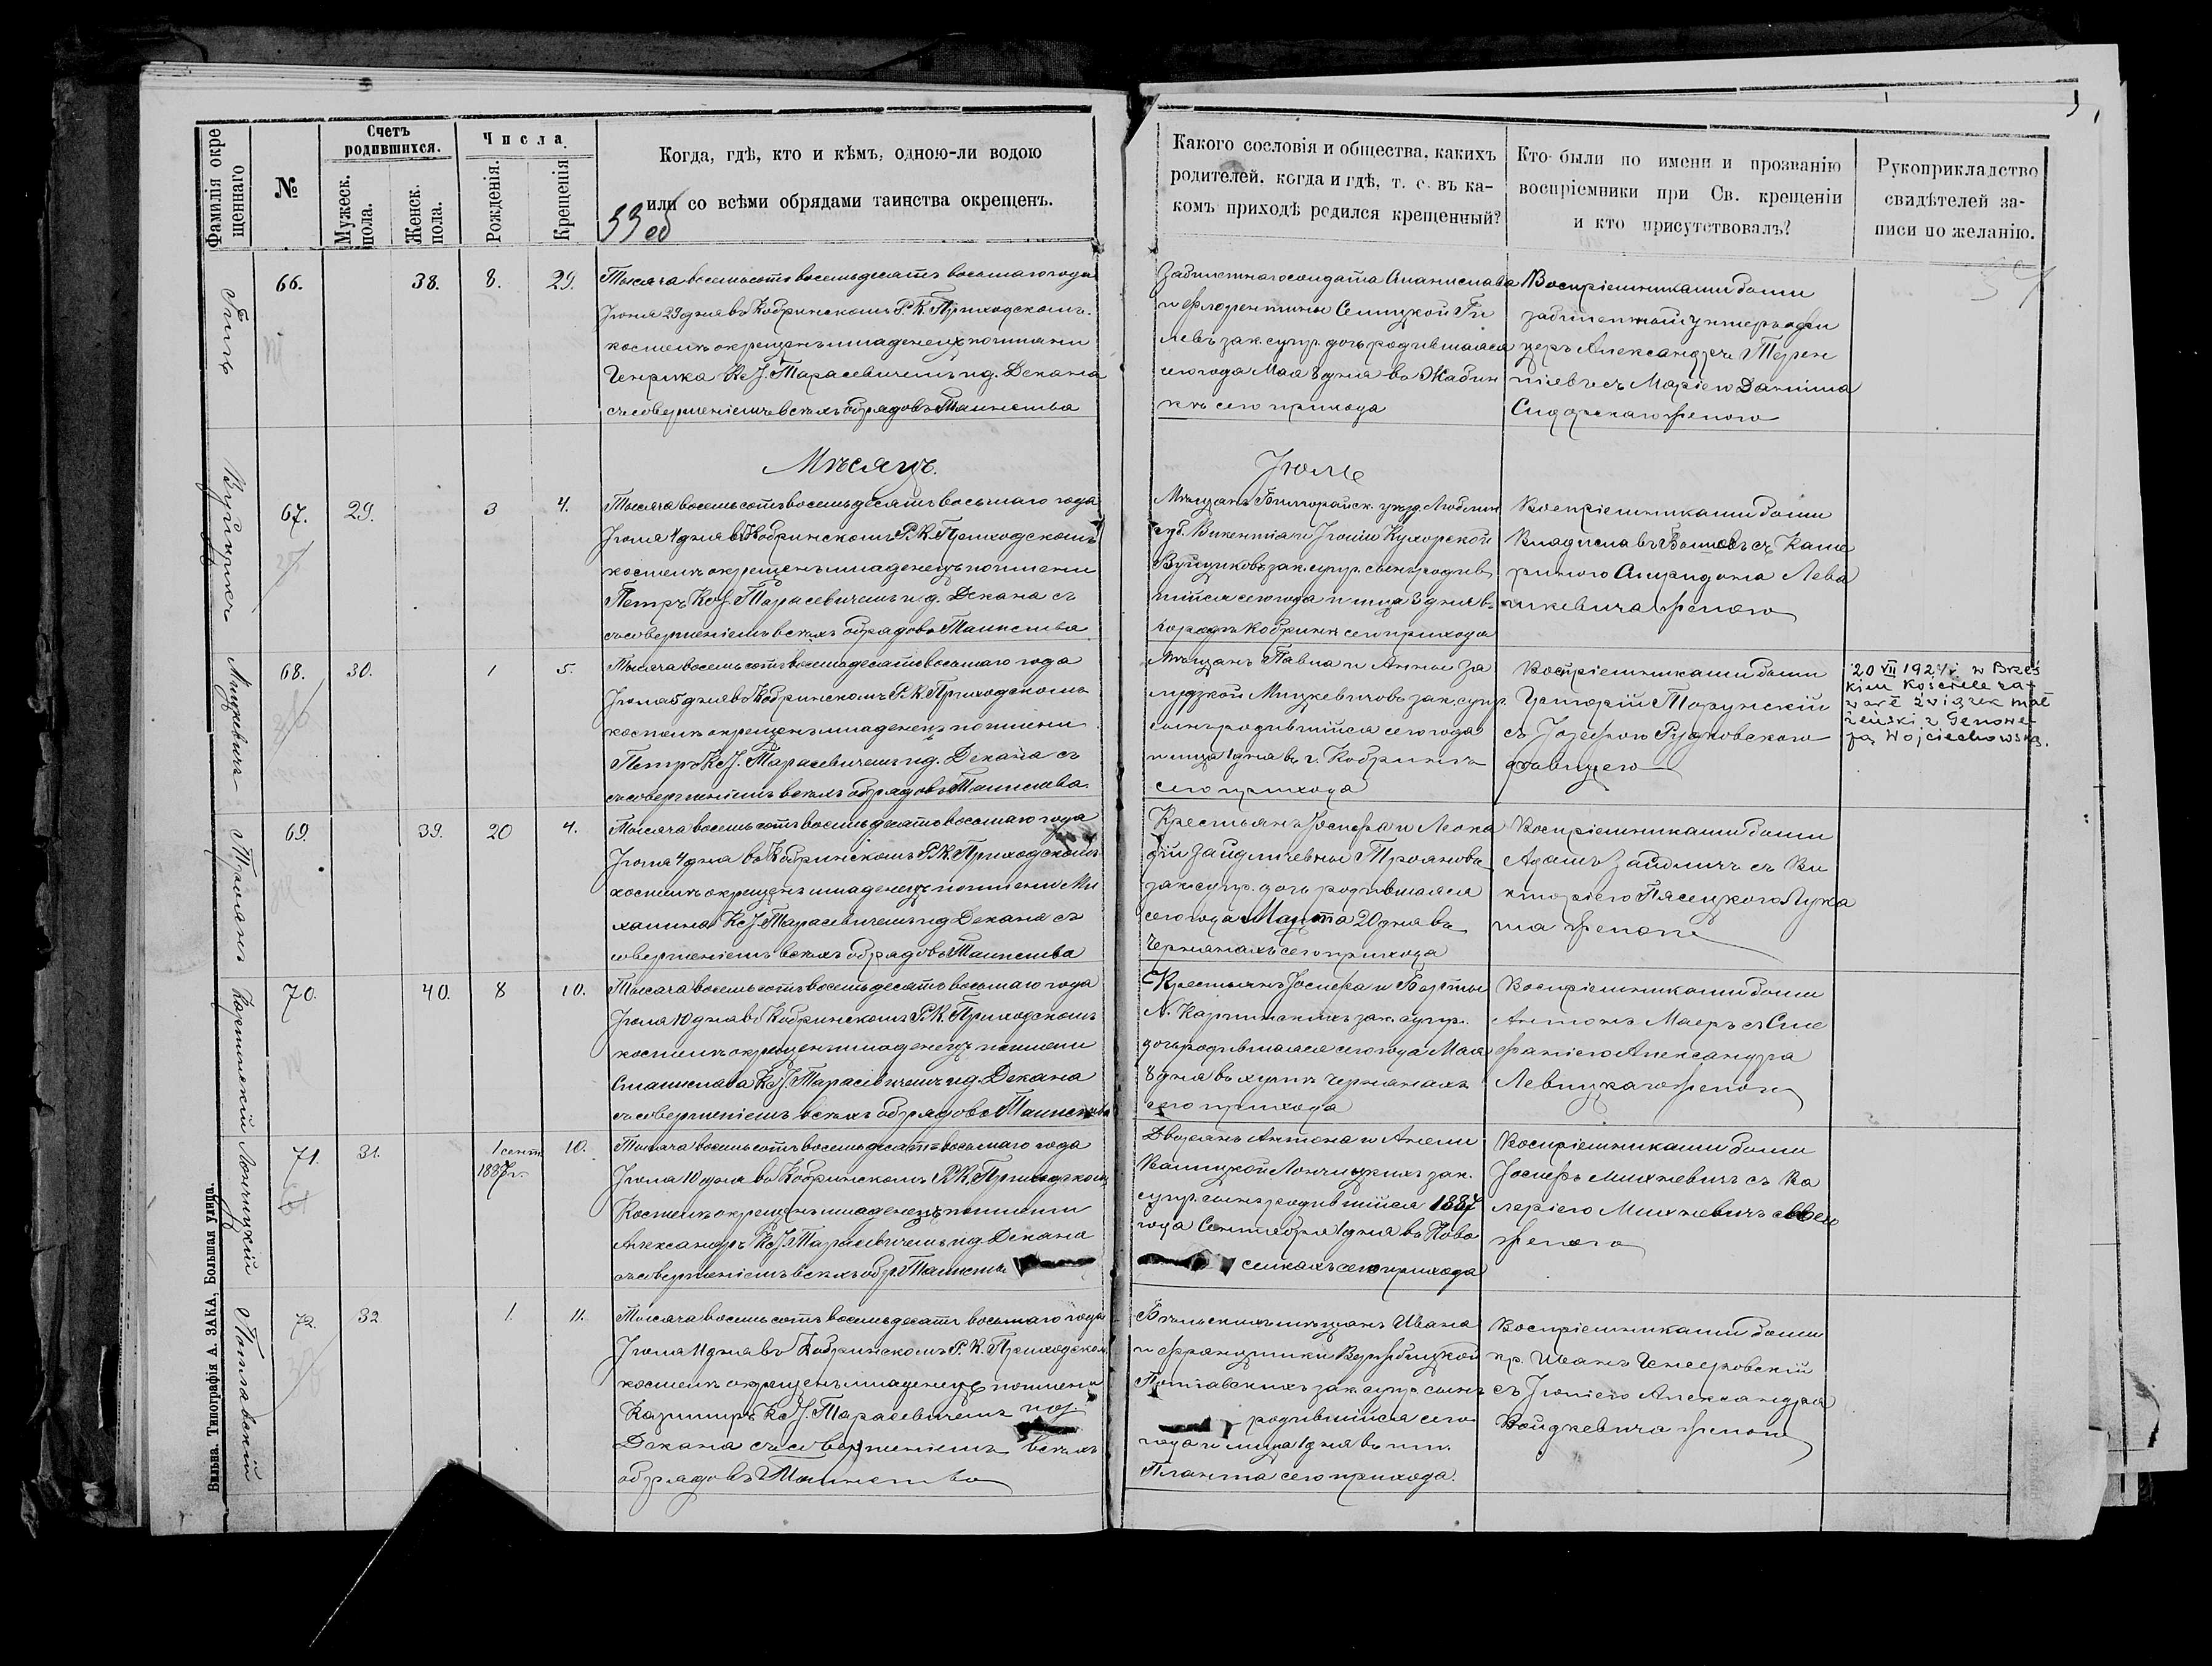 Фамилія окре
щеннаго
№
Счетъ
родившихся.
Мужеск.
пола.
Женск.
пола.
Числа
Рожденія.
Крещенія
Когда, гдѣ, кто и кѣмъ, одною-ли водою
или со всѣми обрядами таинства окрещенъ.
53 об
Какого сословія и общества, какихъ
родителей, когда и гдѣ, т. е. въ ка-
комъ приходѣ родился крещенный?
Кто были по имени и прозванію
воспріемники при Св. крещеніи
и кто присутствовалъ?
Рукоприкладство
свидѣтелей за-
писи по желанію.
Гиль
66.
38.
8.
29.
Тысяча восемьсотъ восемьдесятъ восьмаго года
Іюня 29 дня въ Кобринскомъ Р. К. Приходскомъ
костелѣ окрещенъ младенецъ по имени
Генрика Кс. І. Тарасевичемъ и д. Декана
съ совершеніемъ всѣхъ обрядовъ Таинства
Забилетнаго солдата Станислава
и Флорентины Селицкой Ги
левъ зак. супр. дочь родившаяся
сего года Мая 8 дня въ Жабин
кѣ сего прихода
Воспріемниками были
забилетный унтеръ офи
церъ Александръ Терен
тіевъ съ Маріею Даніила
Сидорскаго женою
Мѣсяцъ.
Іюль
Вуйцикъ
67.
29.
3
4.
Тысяча восемьсотъ восемьдесятъ восьмаго года
Іюля 4 дня въ Кобринскомъ Р. К. Приходскомъ
костелѣ окрещенъ младенецъ по имени
Петръ Кс. І. Тарасевичемъ и д. Декана съ
совершеніемъ всѣхъ обрядовъ Таинства
Мѣщанъ Билгорайск. уѣзд. Люблин
губ. Викентія и Юліи Кухорской
Вуйциковъ зак. супр. сынъ родив
шійся сего года и мца 3 дня въ
городѣ Кобринѣ сего прихода
Воспріемниками были
Владиславъ съ Кате
риною Спиридона Лева
шкевича женою
Мицкевичъ
68.
30.
1
5.
Тысяча восемьсотъ восемьдесятъ восьмаго года
Іюля 5 дня въ Кобринскомъ Р. К. Приходскомъ
костелѣ окрещенъ младенецъ по имени
Петръ Кс. І. Тарасевичемъ и д. Декана съ
совершеніемъ всѣхъ обрядовъ Таинства
Мѣщанъ Павла и Анны За
лудзкой Мицкевичовъ зак. супр.
сынъ родившійся сего года
и мца 1 дня въ г. Кобринѣ
сего прихода
Воспріемниками были
Григорій Торунскій
съ Іозефою Рудковскою
дѣвицею
20 VII 1924 r. w Brzes
kim kościele za-
warł związek mał
żeński z Genowe-
fą Wojciechowską.
Троянъ
69.
39.
20
4.
Тысяча восемьсотъ восемьдесятъ восьмаго года
Іюля 4 дня въ Кобринскомъ Р. К. Приходскомъ
костелѣ окрещенъ младенецъ по имени Ми
халина Кс. І. Тарасевичемъ и д. Декана съ
совершеніемъ всѣхъ обрядовъ Таинства
Крестьянъ Іосифа и Леока
діи Зайдличевны Трояновъ
зак. супр. дочь родившаяся
сего года Марта 20 дня въ
Чернянахъ сего прихода
Воспріемниками были
Адамъ Зайдличъ съ Ви
кторіею Пясецкаго Лука
ша женою
Карпинскій
70.
40.
8
10.
Тысяча восемьсотъ восемьдесятъ восьмаго года
Іюля 10 дня въ Кобринскомъ Р. К. Приходскомъ
костелѣ окрещенъ младенецъ по имени
Станислава Кс. І. Тарасевичемъ и д. Декана
съ совершеніемъ всѣхъ обрядовъ Таинства
Крестьянъ Іосифа и Барты
Карпинскихъ зак. супр.
дочь родившаяся сего года Мая
8 дня въ Чернянахъ
сего прихода
Воспріемниками были
Антонъ Маеръ съ Сте
фаніею Александра
Левицкаго женою
Лончицкій
71.
31.
1 сент.
1887 г.
10.
Тысяча восемьсотъ восемьдесятъ восьмаго года
Іюля 10 дня въ Кобринскомъ Р. К. Приходскомъ
Костелѣ окрещенъ младенецъ по имени
Александръ Кс. І. Тарасевичемъ и д. Декана
съ совершеніемъ всѣхъ обр. Таинства
Дворянъ Антона и Анели
Валицкой Лончицкихъ зак.
супр. сынъ родившійся 1887
года Сентября 1 дня въ Ново
селкахъ сего прихода
Воспріемниками были
Іосифъ Михневичъ съ Ва
леріею Михневичъ своею
женою
Полтавскій
72.
32
1.
11.
Тысяча восемьсотъ восемьдесятъ восьмаго года
Іюля 11 дня въ Кобринскомъ Р. К. Приходском
костелѣ окрещенъ младенецъ по имени
Казимиръ Кс. І. Тарасевичемъ
Декана съ совершеніемъ всѣхъ
обрядовъ Таинства
Бѣльскихъ мѣщанъ Ивана
и Францишки Вержбицкой
Полтавскихъ зак. супр. сынъ
родившійся сего
года и мца 1 дня въ им.
Планта сего прихода.
Воспріемниками были
съ Юліею Александра
Войдкевича женою
Вильна. Типографія А. ЗАКА, Большая улица.